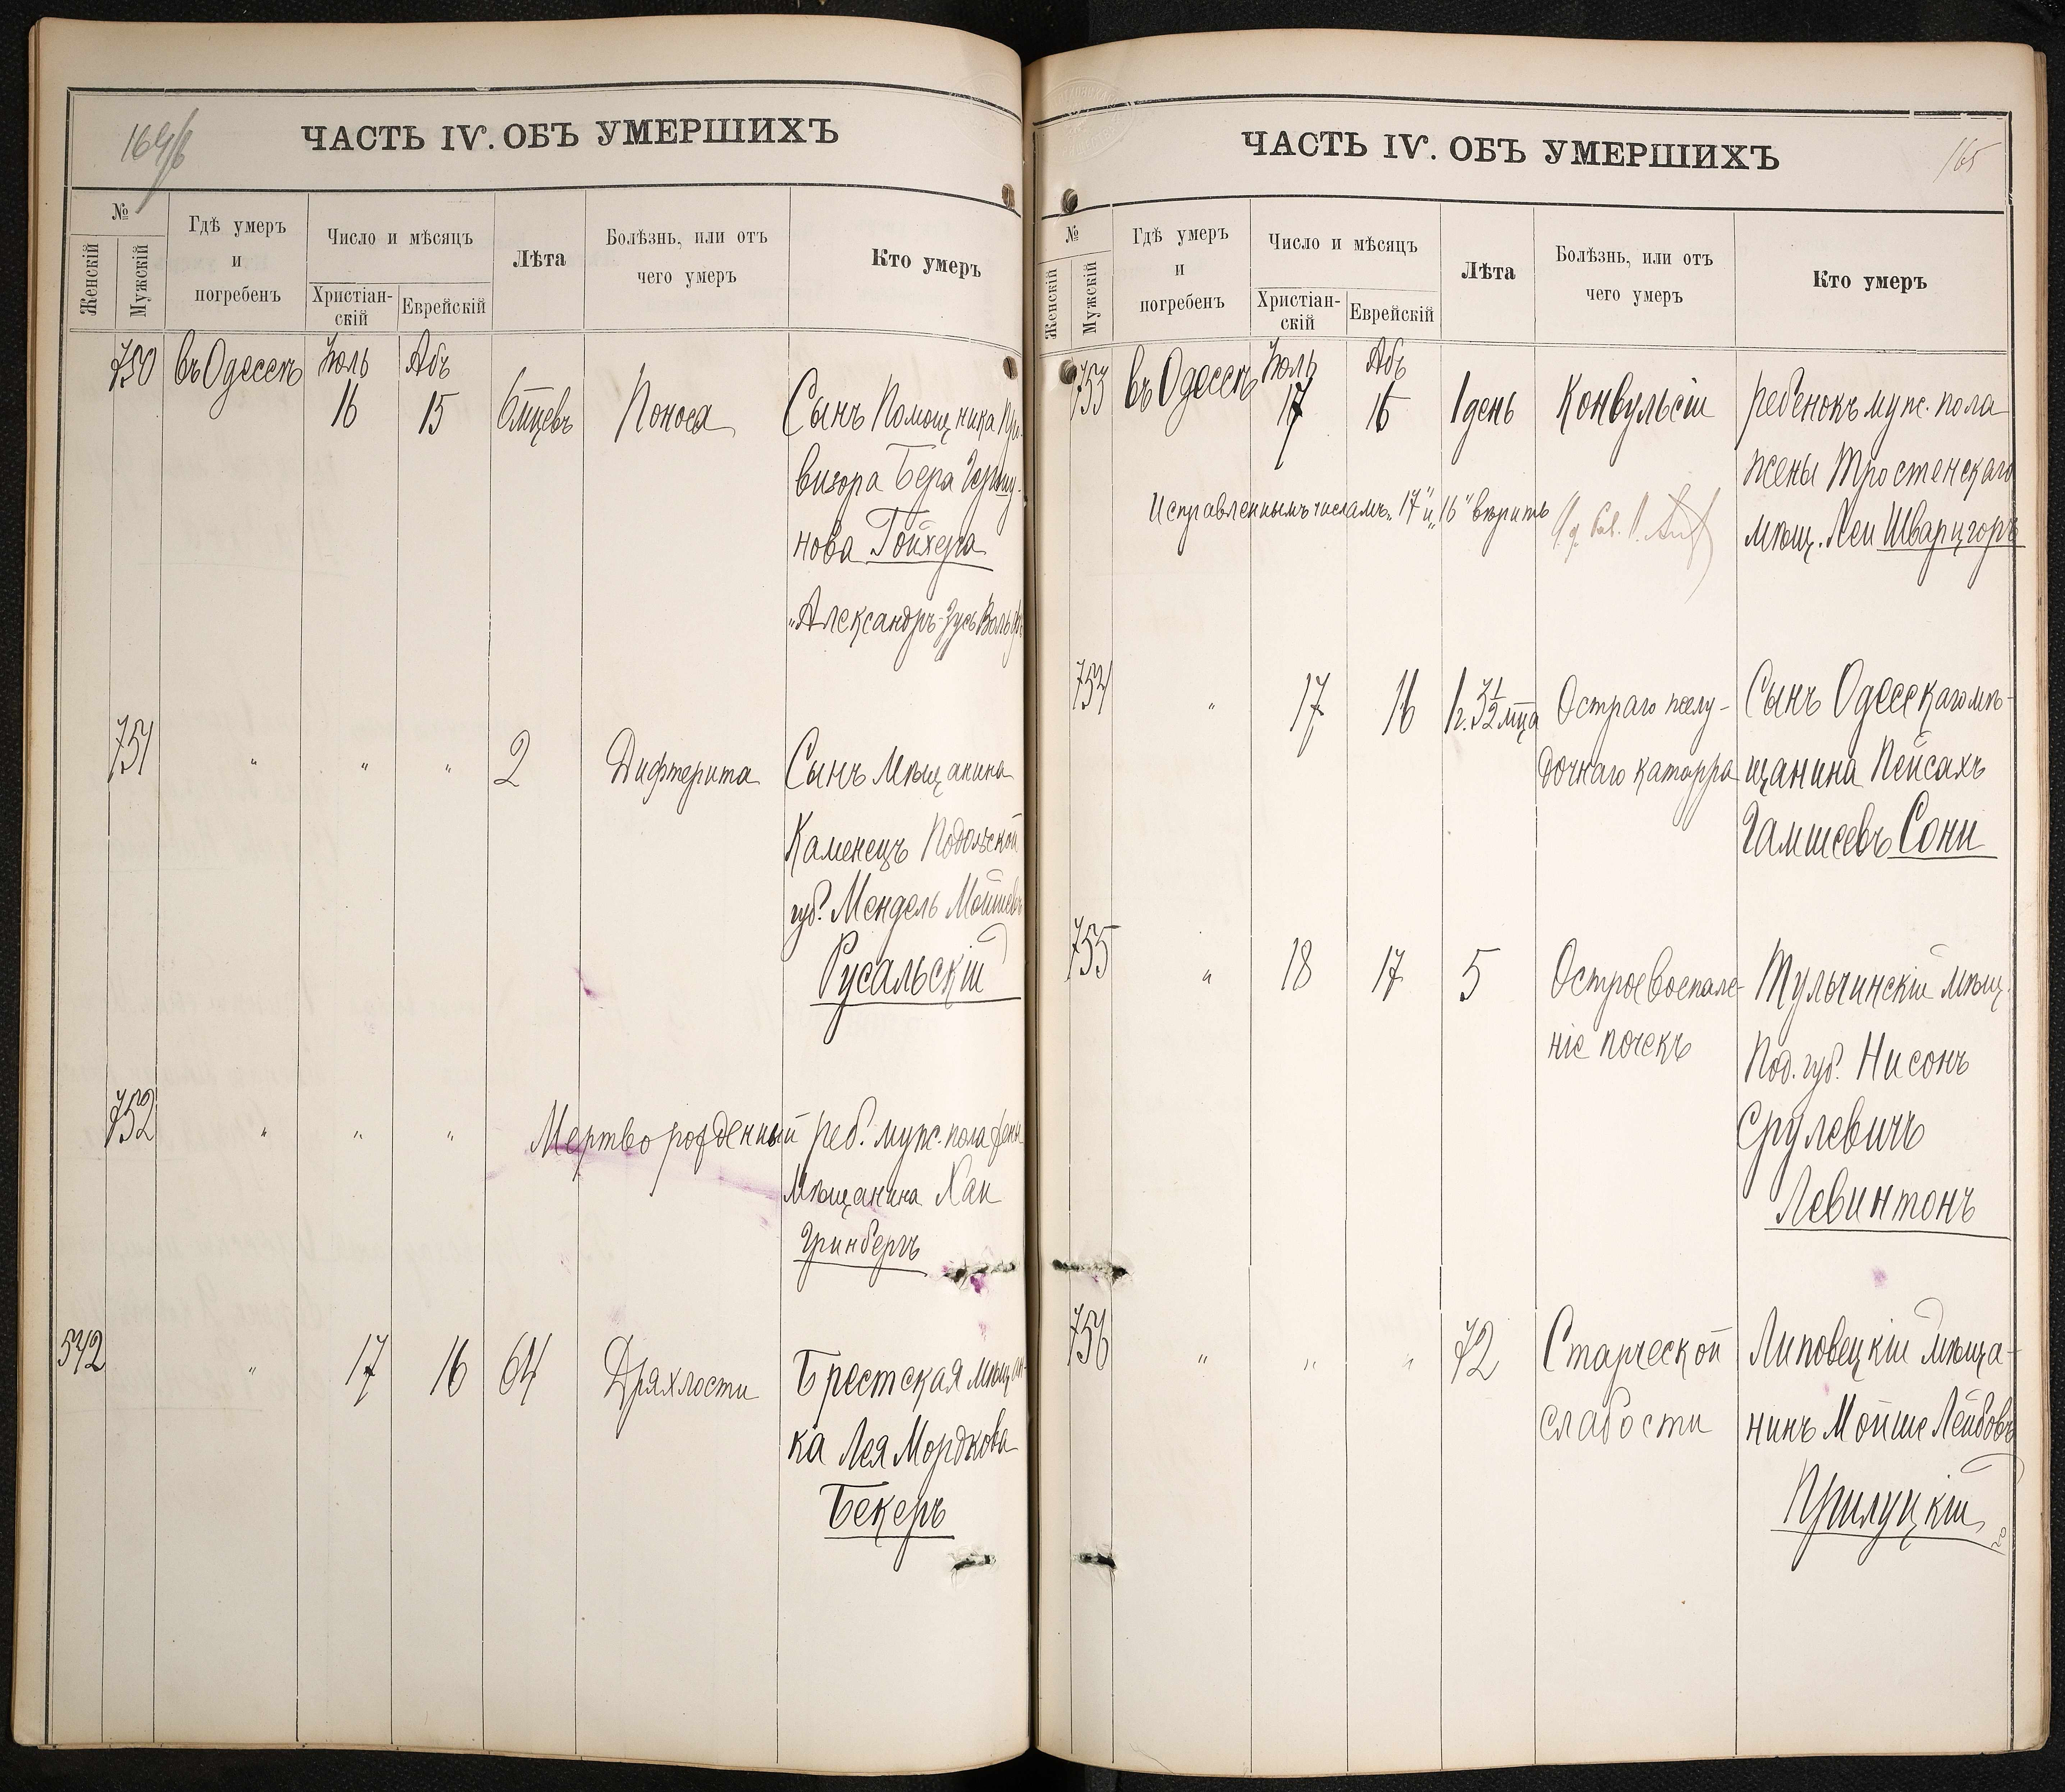 164/б
ЧАСТЬ IV. ОБЪ УМЕРШИХЪ
№
Женскій
Мужскій
Гдѣ умеръ
и
погребенъ
Число и мѣсяцъ
Христіан-
скій
Еврейскій
Лѣта
Болѣзнь, или отъ
чего умеръ
Кто умеръ
750 въ Одессѣ Іюль Абъ
16 15 6 мцевъ Поноса Сынъ Помощника Про-
визора Бера Герш
нова Гойхера
„Александръ-Зусь
751 " " " 2 Дифтерита Сынъ Мѣщанина
Каменецъ Подольской
губ. Мендель Мойшевъ
Русальскій
752 " " " Мертворожденный реб. муж. пола жены
Мѣщанина Хаи
Гринбергъ
542 " 17 16 64 Дряхлости Брестская мѣщан-
ка Лея Мордкова
Бекеръ
165
ЧАСТЬ IV. ОБЪ УМЕРШИХЪ
№
Женскій
Мужскій
Гдѣ умеръ
и
погребенъ
Число и мѣсяцъ
Христіан-
скій
Еврейскій
Лѣта
Болѣзнь, или отъ
чего умеръ
Кто умеръ
753 въ Одессѣ Іюль Абъ
17 16 1 день Конвульсіи ребенокъ муж. пола
жены Тростенскаго
Исправленнымъ числамъ „17" и „16" вѣрить
мѣщ. Леи Шварцгоръ
754 " 17 16 1 г. 3½ мца Остраго желу- Сынъ Одесскаго мѣ-
дочнаго катарра щанина Пейсахъ
Гамшеевъ Сони
755 " 18 17 5 Острое воспале- Тульчинскій мѣщ.
ніе почекъ Под. губ. Нисонъ
Срулевичъ
Левинтонъ
756 " " " 72 Старческой Липовецкій мѣща-
слабости нинъ Мойше Лейбовъ
Прилуцкій